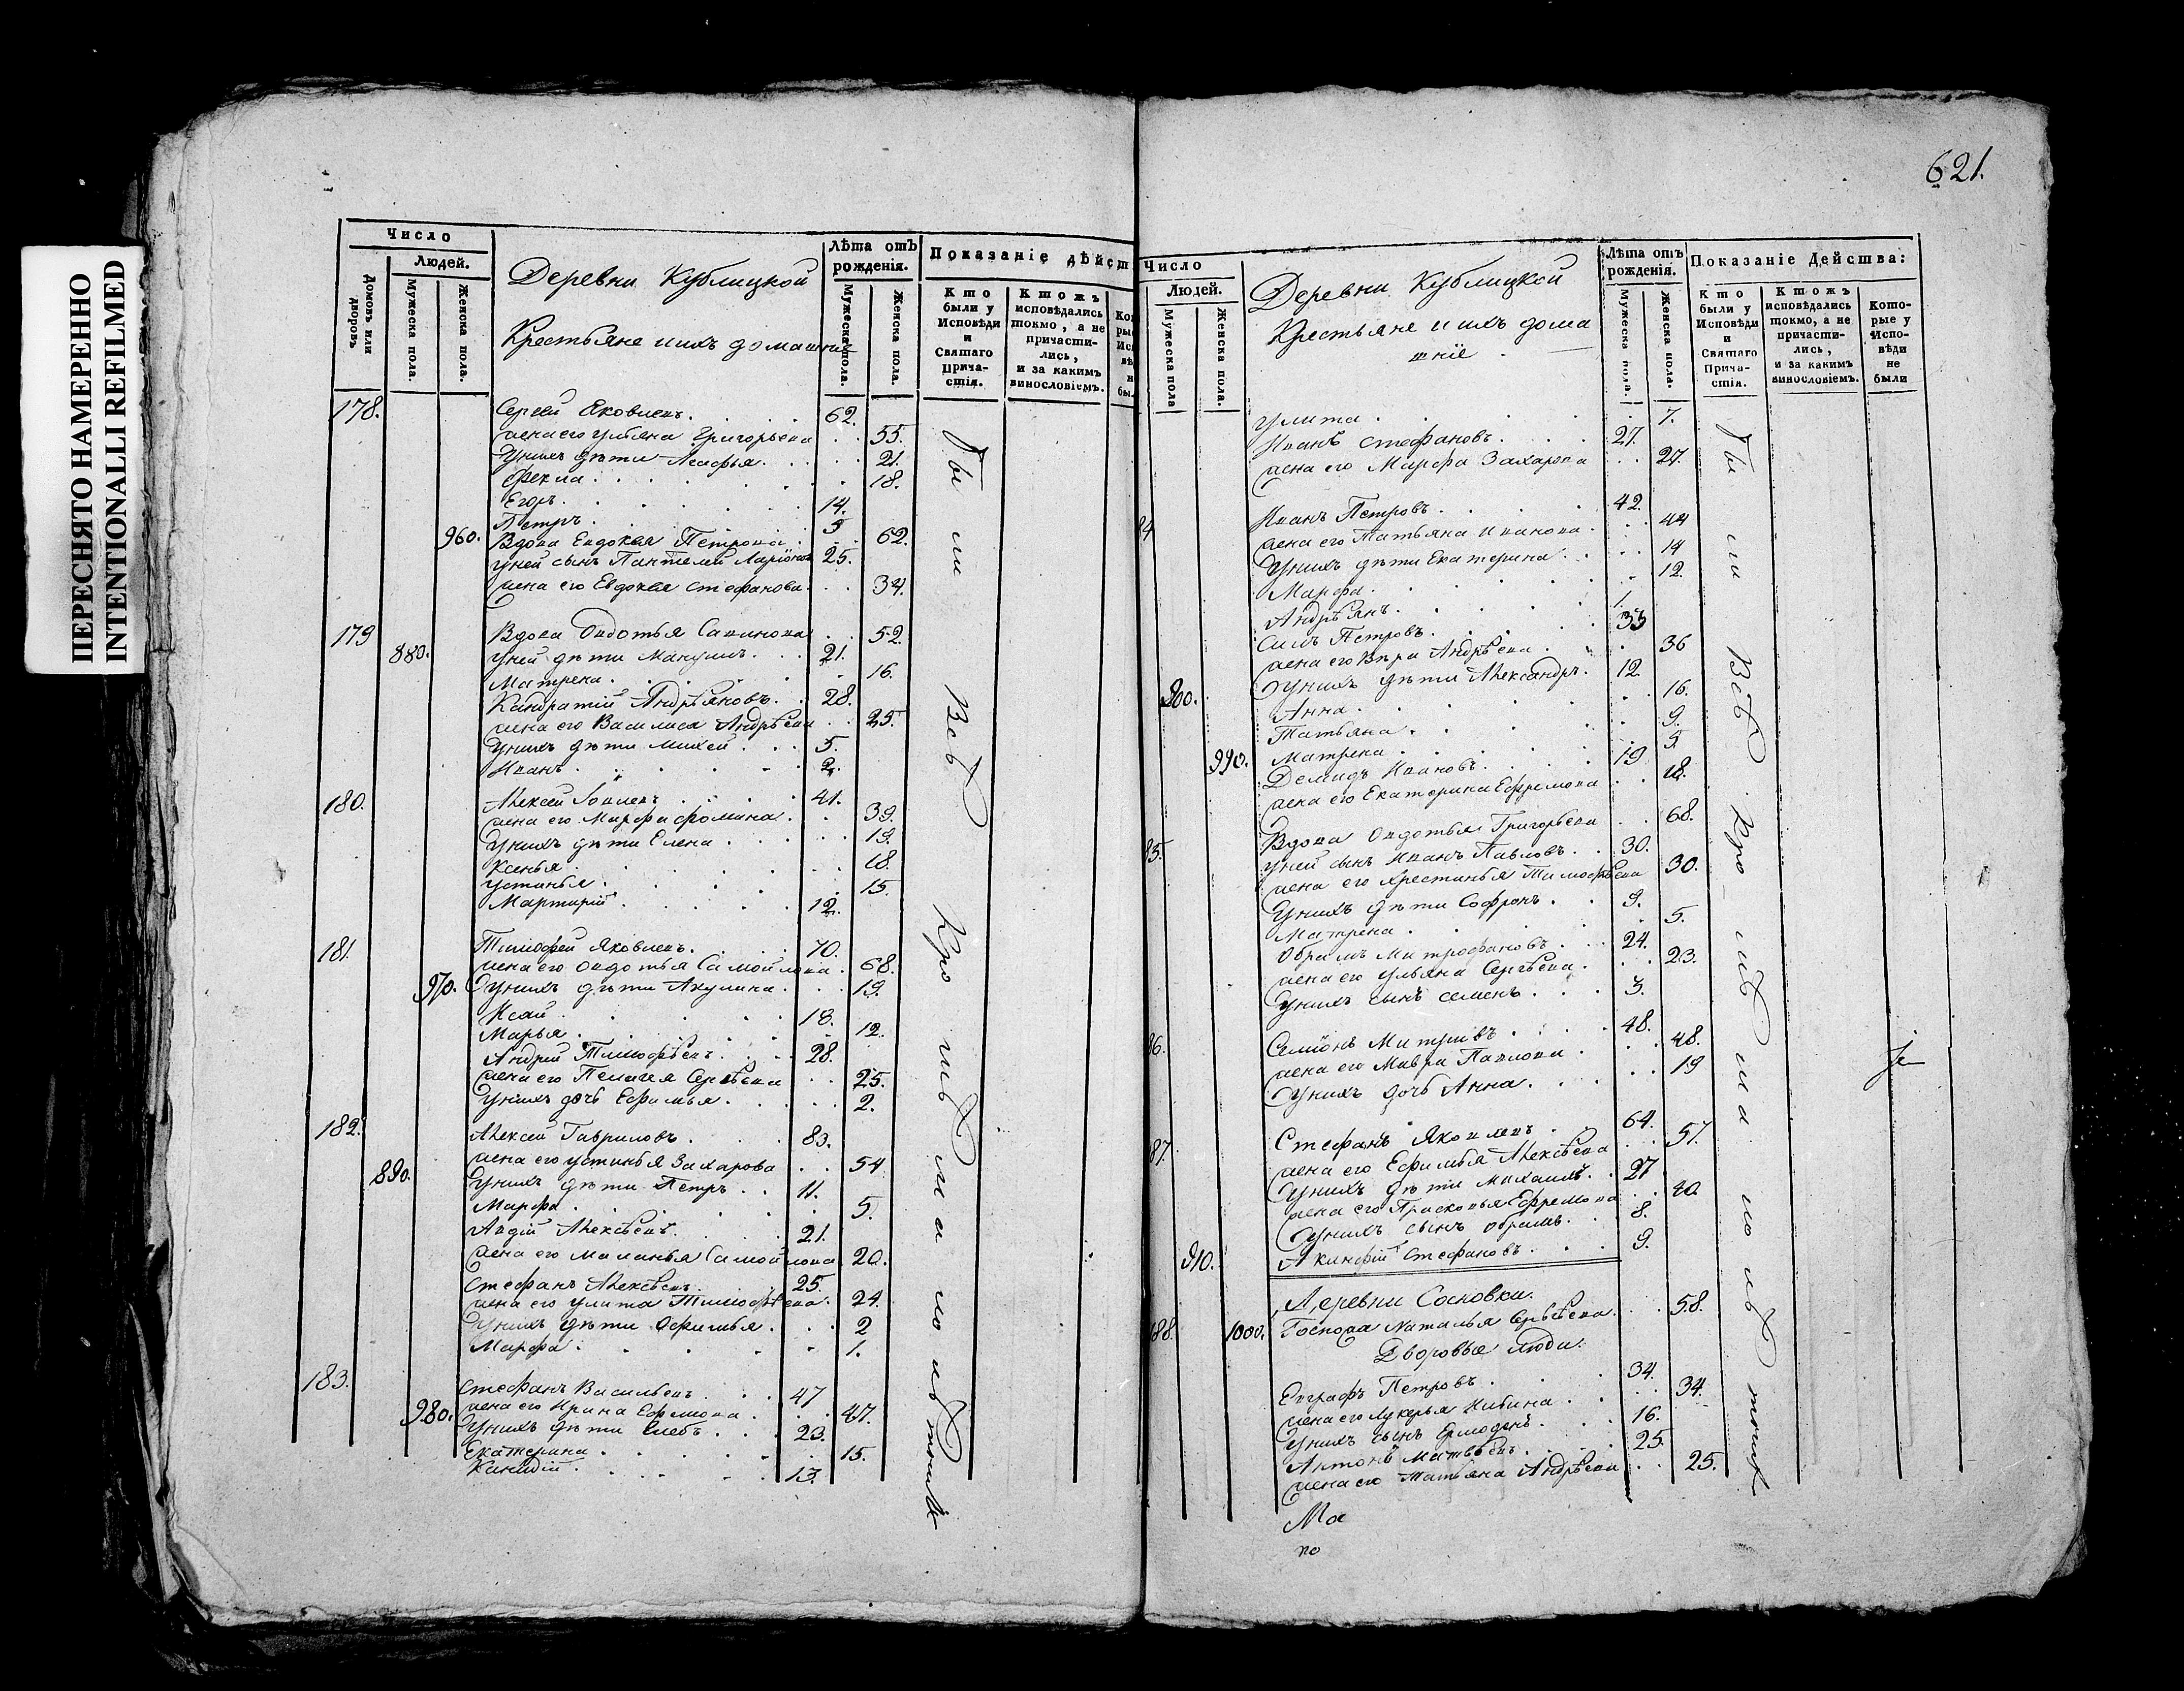 ПЕРЕСНЯТО НАМЕРЕННО
INTENTIONALLI REFILMED
Число
Людей.
Домовъ или дворовъ
Мужеска пола.
Женска пола.
Деревни Кублицкой
Крестьяне и ихъ домашніе
Лѣта отъ рожденія.
Мужеска пола.
Женска пола.
Показаніе дѣйст
Кто были у Исповѣди и Святаго Прича-стія.
Ктожъ исповѣдались токмо, а не причасти-лись, и за какимъ винословіемъ.
178. Сергей Яковлевъ. 62.
жена его Ульяна Григорьева 55.
У нихъ дѣти Агафья. 21.
Фекла. 18.
Егоръ. 14.
Петръ. 5
960. Вдова Евдокея Петрова. 62.
У ней сынъ Пантелей Ларіоновъ 25.
жена его Евдокея Стефанова. 34.
179 Вдова Овдотья Савинова 52.
880. У ней дѣти Мануилъ. 21.
Матрена. 16.
Кандратій Андрѣяновъ. 28.
жена его Василиса Андрѣева 25.
У нихъ дѣти Михей. 5.
Иванъ. 2.
180. Алексей Іовлевъ. 41.
жена его Марфа Фомина. 39.
У нихъ дѣти Елена. 19.
Ксенья. 18.
Устинья. 15.
Мартирій. 12.
181. Тимофей Яковлевъ. 70.
жена его Овдотья Самойлова. 68.
970. У нихъ дѣти Акулина. 19.
Исай. 18.
Марья. 12.
Андрей Тимофѣевъ. 28.
жена его Пелагея Сергѣева 25.
У нихъ дочь Ефимья. 2.
182. Алексей Гавриловъ. 83.
жена его Устинья Захарова 54
890. У нихъ дѣти Петръ. 11.
Марфа. 5.
Авдій Алексѣевъ. 21.
жена его Маланья Самойлова 20.
Стефанъ Алексѣевъ. 25.
жена его Улита Тимофѣева. 24.
У нихъ дѣти Офимья. 2
Марфа. 1.
183. Стефанъ Васильевъ. 47
980. жена его Ирина Ефремова. 47.
У нихъ дѣти Глебъ. 23.
Екатерина. 15.
13.
Были Всѣ Кро
621.
Число
Людей.
Мужеска пола
Женска пола.
Деревни Кублицкой
Крестьяне и ихъ дома
шніе
Лѣта отъ рожденія.
Мужеска пола.
Женска пола.
Показаніе Действа:
Кто были у Исповѣди и Святаго Прича-стія.
Ктожъ исповѣдались токмо, а не причасти-лись, и за какимъ винословіемъ.
Кото-рые у Испо-вѣди не были
Улита. 7.
Иванъ Стефановъ. 27.
жена его Марфа Захарова 27.
84 Иванъ Петровъ. 42.
жена его Татьяна Иванова. 44
У нихъ дѣти Екатерина. 14
Марфа. 12.
Андрѣянъ. 1.
Петровъ. 33
жена его Вѣра Андрѣева. 36
900. У нихъ дѣти Александръ. 12.
Анна. 16.
Татьяна. 9.
990. Матрена. 5.
Демидъ Ивановъ. 19
жена его Екатерина Ефремова 18.
85. Вдова Овдотья Григорьева 68.
У ней сынъ Иванъ Павловъ. 30.
жена его Хрестинья Тимофѣева 30.
У нихъ дѣти Софронъ. 9.
Матрена. 5.
Обрамъ Митрофановъ. 24.
жена его Ульяна Сергѣева. 23.
У нихъ сынъ Семенъ. 3.
86. Семіонъ 48.
жена его Мавра Павлова. 48.
У нихъ дочь Анна. 19
87. Стефанъ Яковлевъ. 64.
жена его Ефимья Алексѣева 57.
У нихъ дѣти Михаилъ. 27
жена его Прасковья Ефремова 40.
У нихъ сынъ Обрамъ. 8.
910. Акинфій Стефановъ. 9.
Деревни Сосновки.
188. 1000. Госпожа Наталья 58.
Дворовые люди.
Евграфъ Петровъ. 34.
жена его Лукерья 34.
У нихъ сынъ 16.
Антонъ Матвѣевъ. 25.
жена его Татьяна Андрѣева 25.
Были Всѣ Кро
Ма
по